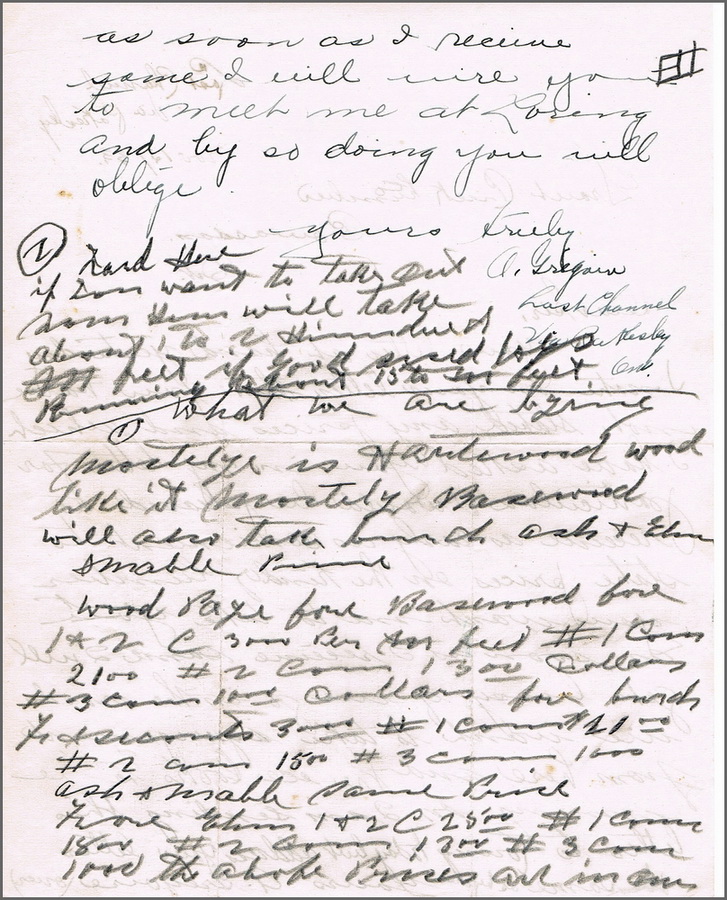 as soon as I receive
same I will wire you
to meet me at Loring
and by so doing you will
oblige.
yours truly
A. Gregoire
Lost Channel
Via Pakesley
Ont.
① Hard
if you want to take out
some Hem will take
about 1 to 2 Hunndred
feet if good
Running about 15 to feet
What we are bying
①
Mostelye is Hardewood wood
like it Mostely Basewood
will also take burch ash + Elm
+ Mable Prime
wood Paye fore Basewood fore
1 + 2 C 3000 Per M feet # 1 Com
2100 # 2 Com 1300 Dollars
# 3 Com 1000 Dollars for burch
+ seconts 3000 # 1 Com $ 21 00
# 2 com 1500 # 3 Com 1000
ash + Mable same Price
Fore Elm 1 + 2 C 2500 # 1 Com
1800 # 2 Com 1300 # 3 Com
1000 the above Prises are in